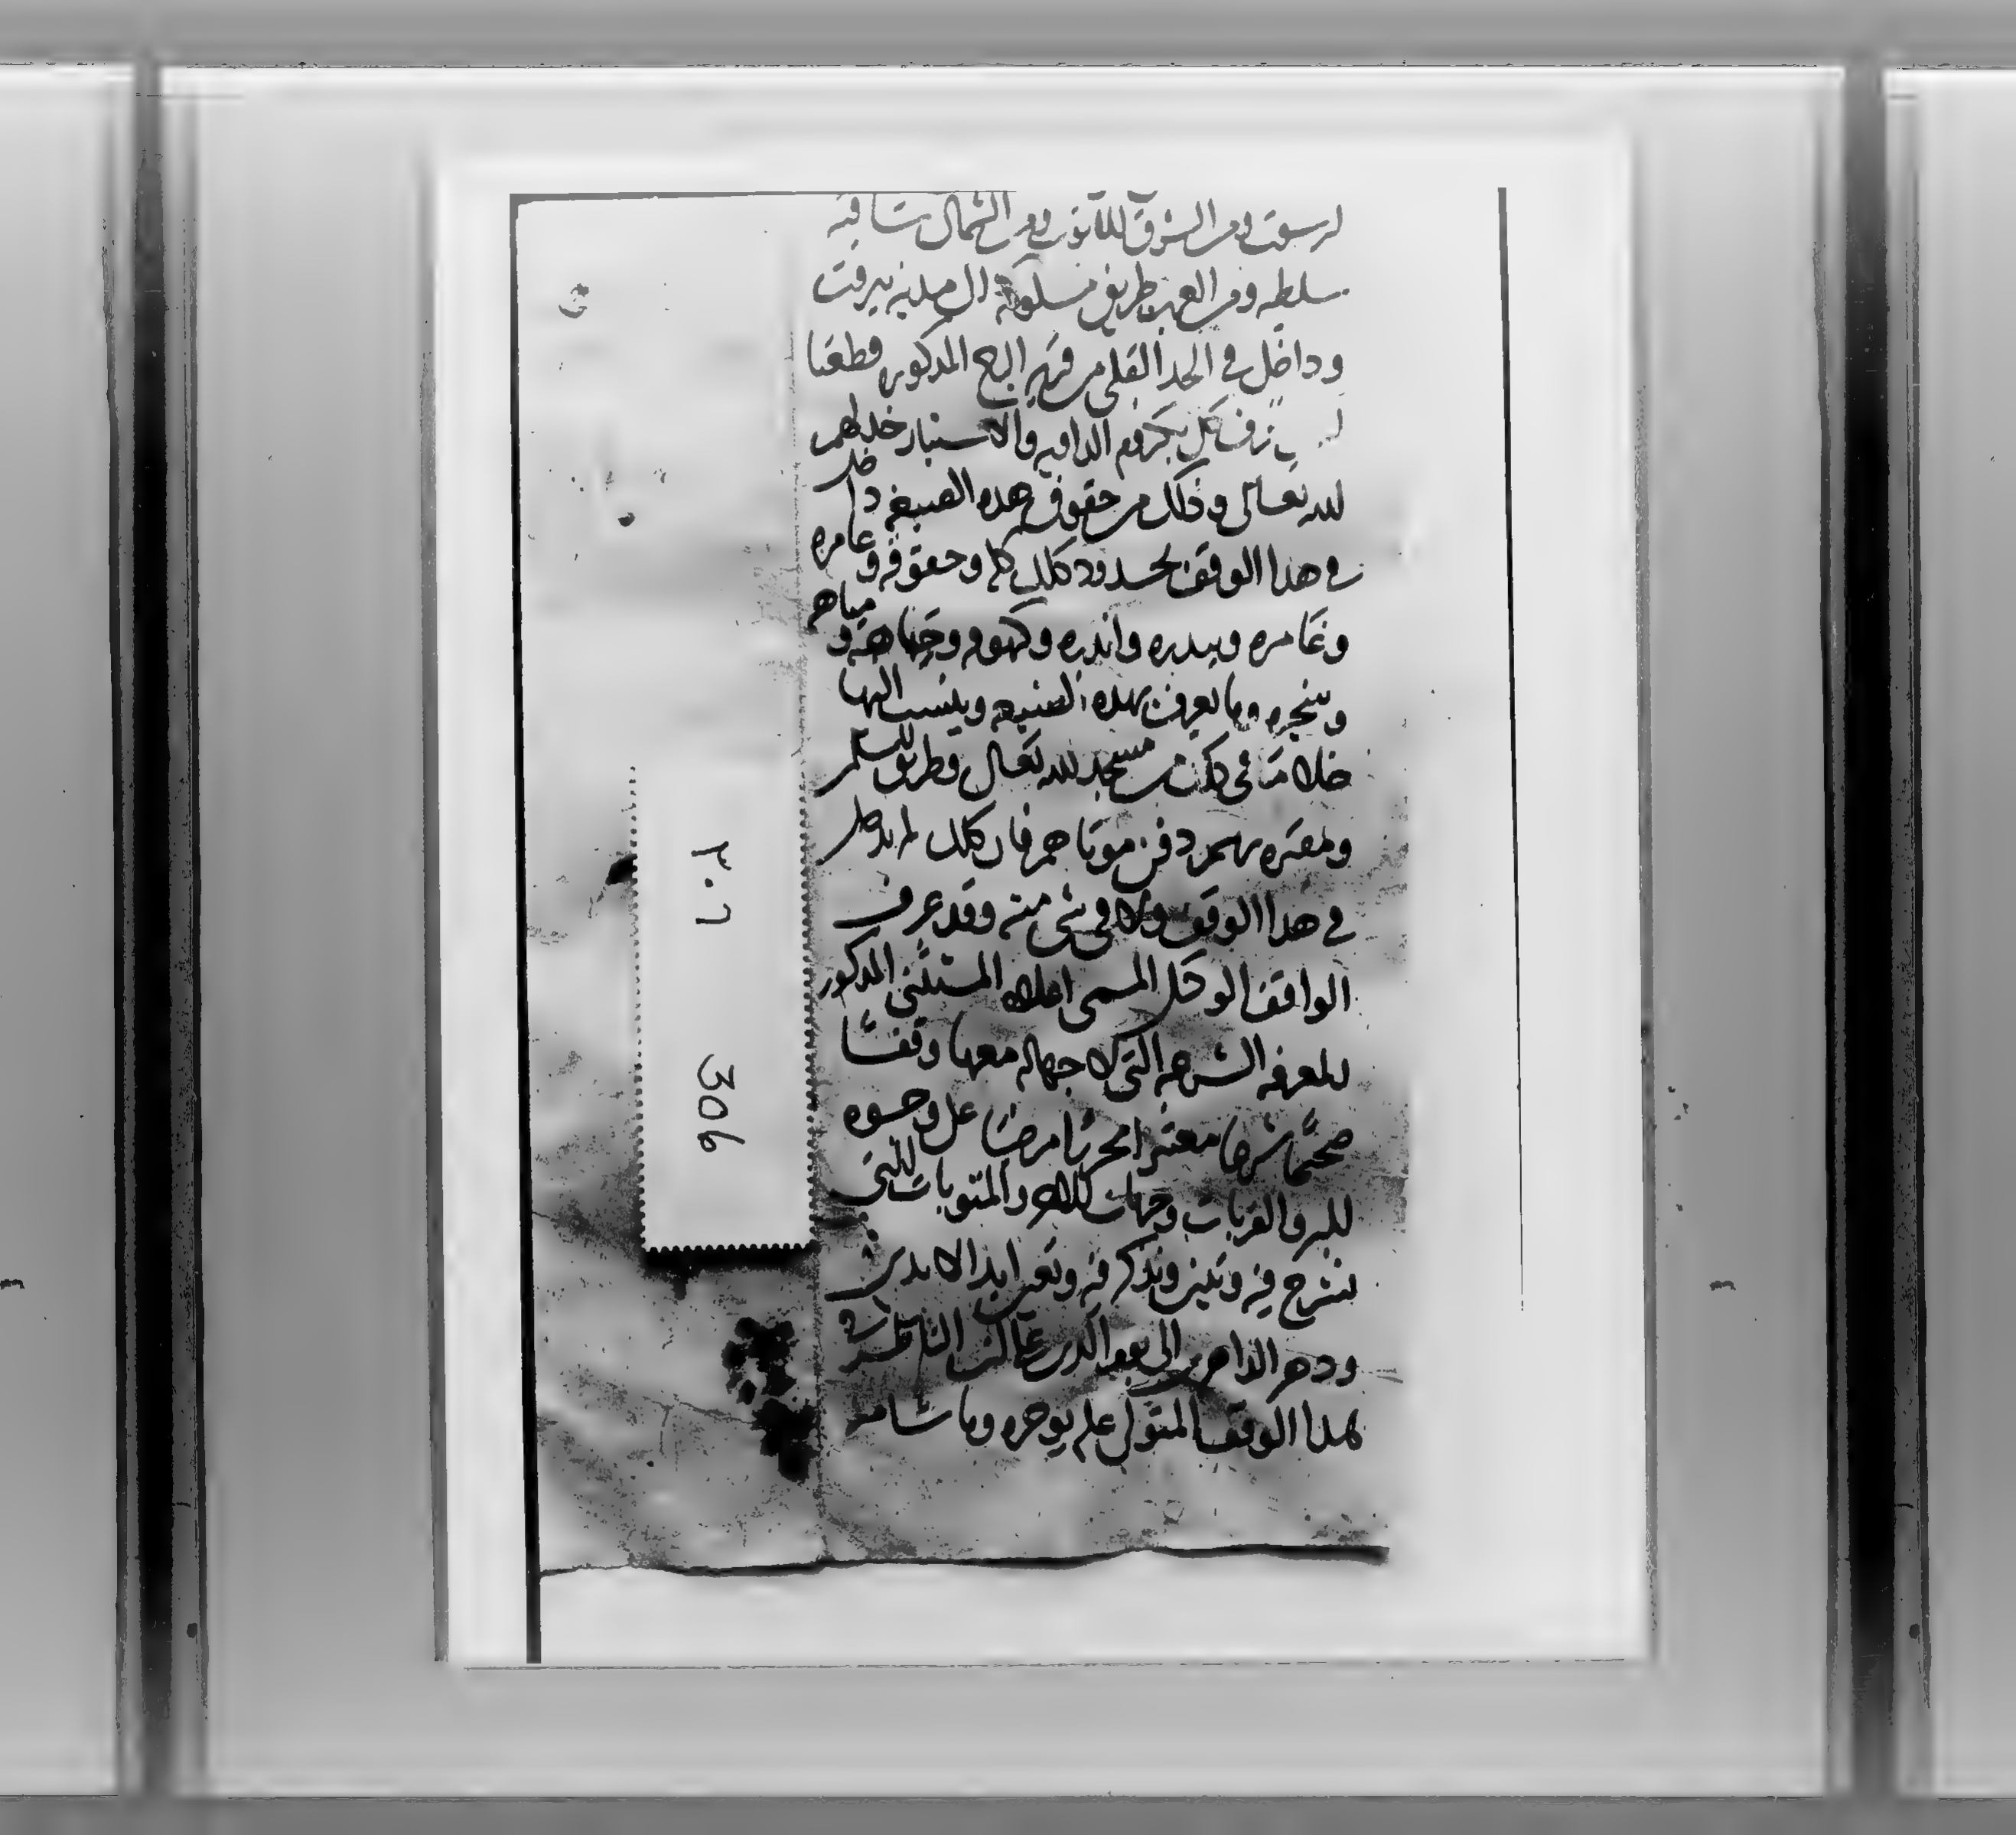 ومن الشرق ومن الشمال ساقية
سلطيه ومن الغرب طريق مسلوكة الى مدينة بيروت
وداخل في الحد القبلي من قرية البرج المذكور قطعتا
بكروم
لله تعالى وذلك من حقوق هذه الضيعة داخل
في هذا الوقف بحدود ذلك كله وحقوقه وعامره
وغامره وبيدره واندره وكهوفه ومياهه
وشجره وما يعرف بهذه الضيعة وينسب اليها
خلا ما في ذلك من مسجد لله تعالى وطريق للمسلمين
ومقبرة برسم دفن موتاهم فان ذلك لم يدخل
في هذا الوقف ولا في شي منه وقد عرف
الواقف الوكيل المسمى اعلاه المستثنى المذكور
المعرفة الشرعية التي لا جهالة معها وقفا
صحيحا شرعيا معتبرا محررا مرضيا على وجوه
البر والقربات وجهات والمثوبات التي
تشرح فيه وتبين وتذكر فيه وتعين ابد الابدين
ودهر الداهرين الناظر في
هذا الوقف المتولي عليه يوجره وما شا منه
٣٠٦
306